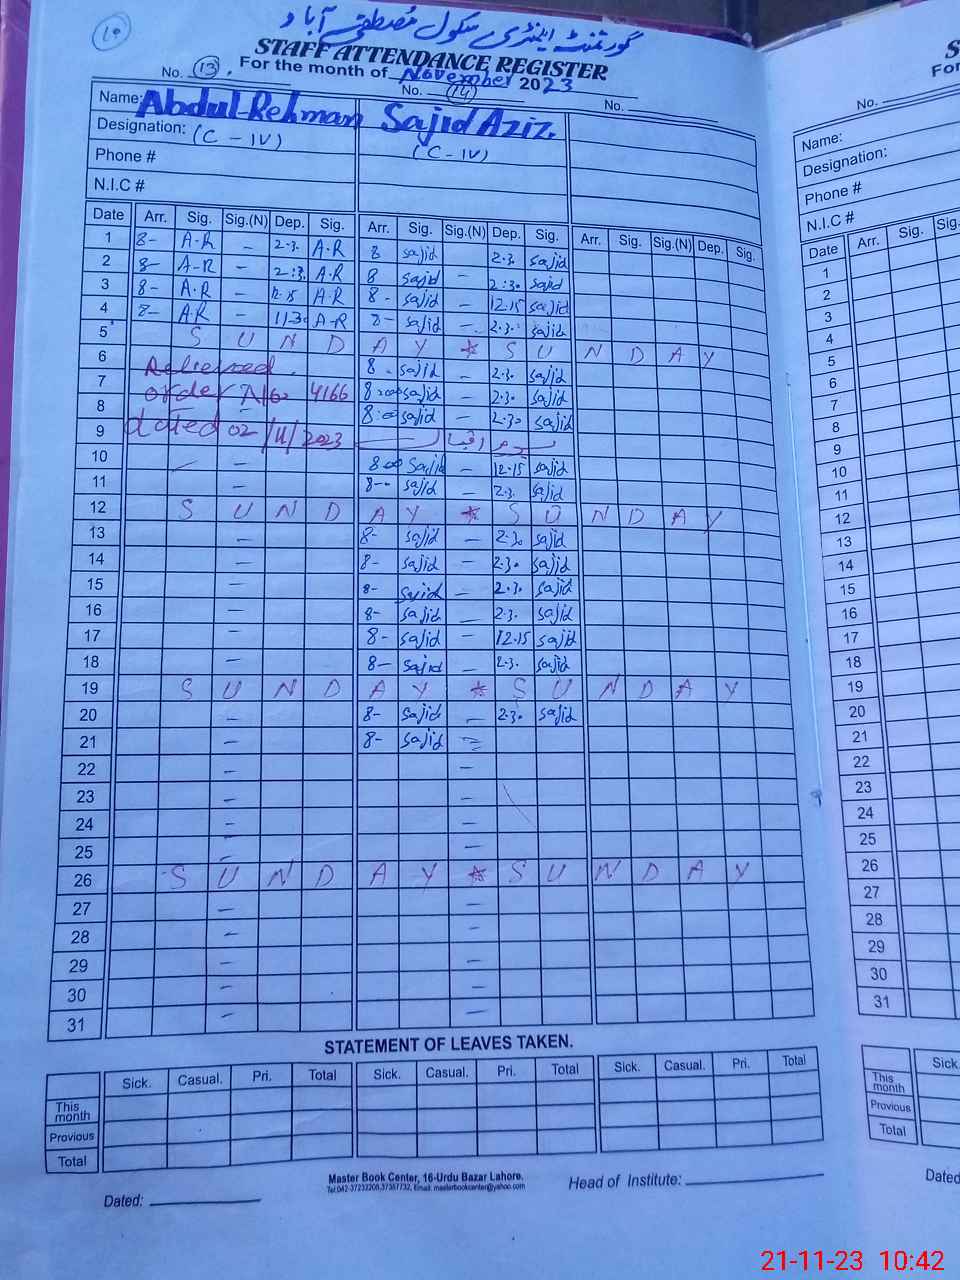 10
گورنمنٹ ایلیمنٹری سکول مصطفی آباد
STAFF ATTENDANCE REGISTER
For the month of November 2023
No. 13 No. 14 No.
Name: Abdul Rehman Sajid Aziz.
Designation: (C-IV) (C-IV)
Phone #
N.I.C #
Date Arr. Sig. Sig.(N) Dep. Sig. Arr. Sig. Sig.(N) Dep. Sig. Arr. Sig. Sig.(N) Dep. Sig.
1 8- A.R - 2.3. A.R 8 sajid 2.3. sajid
2 8- A-R - 2:3. A.R 8 sajid - 2:30 sajid
3 8- A.R - 12.15 A.R 8- sajid - 12.15 sajid
4 8- A.R - 11.30 A-R 8- sajid - 2.3. sajid
5 S U N D A Y * S U N D A Y
6 Relieved. 8. sajid - 2.3. sajid
7 order No 4166 8:00 sajid - 2.3. sajid
8 - 8:0 sajid - 2.30 sajid
9 dated 02/11/2023 یوم اقبال
10 - 8:00 Sajid - 12.15 sajid
11 - 8-- sajid - 2.3. sajid
12 S U N D A Y * S U N D A Y
13 - 8- sajid - 2.30 sajid
14 - 8- sajid - 2.3. sajid
15 - 8- sajid - 2.3. sajid
16 - 8- sajid - 2.3. sajid
17 - 8- sajid - 12.15 sajid
18 - 8- sajid - 2.3. sajid
19 S U N D A Y * S U N D A Y
20 - 8- sajid - 2.30 sajid
21 - 8- sajid -
22 - -
23 - -
24 - -
25 - -
26 S U N D A Y * S U N D A Y
27 - -
28 - -
29 - -
30 - -
31 - -
STATEMENT OF LEAVES TAKEN.
Sick. Casual. Pri. Total Sick. Casual. Pri. Total Sick. Casual. Pri. Total
This month
Provious
Total
Master Book Center, 16-Urdu Bazar Lahore.
Tel:042-37233208,37357732, Email: masterbookcenter@yahoo.com
Dated: Head of Institute:
S
For
No.
Name:
Designation:
Phone #
N.I.C #
Date Arr. Sig. Sig.
1
2
3
4
5
6
7
8
9
10
11
12
13
14
15
16
17
18
19
20
21
22
23
24
25
26
27
28
29
30
31
Sick
This month
Provious
Total
Dated
21-11-23 10:42